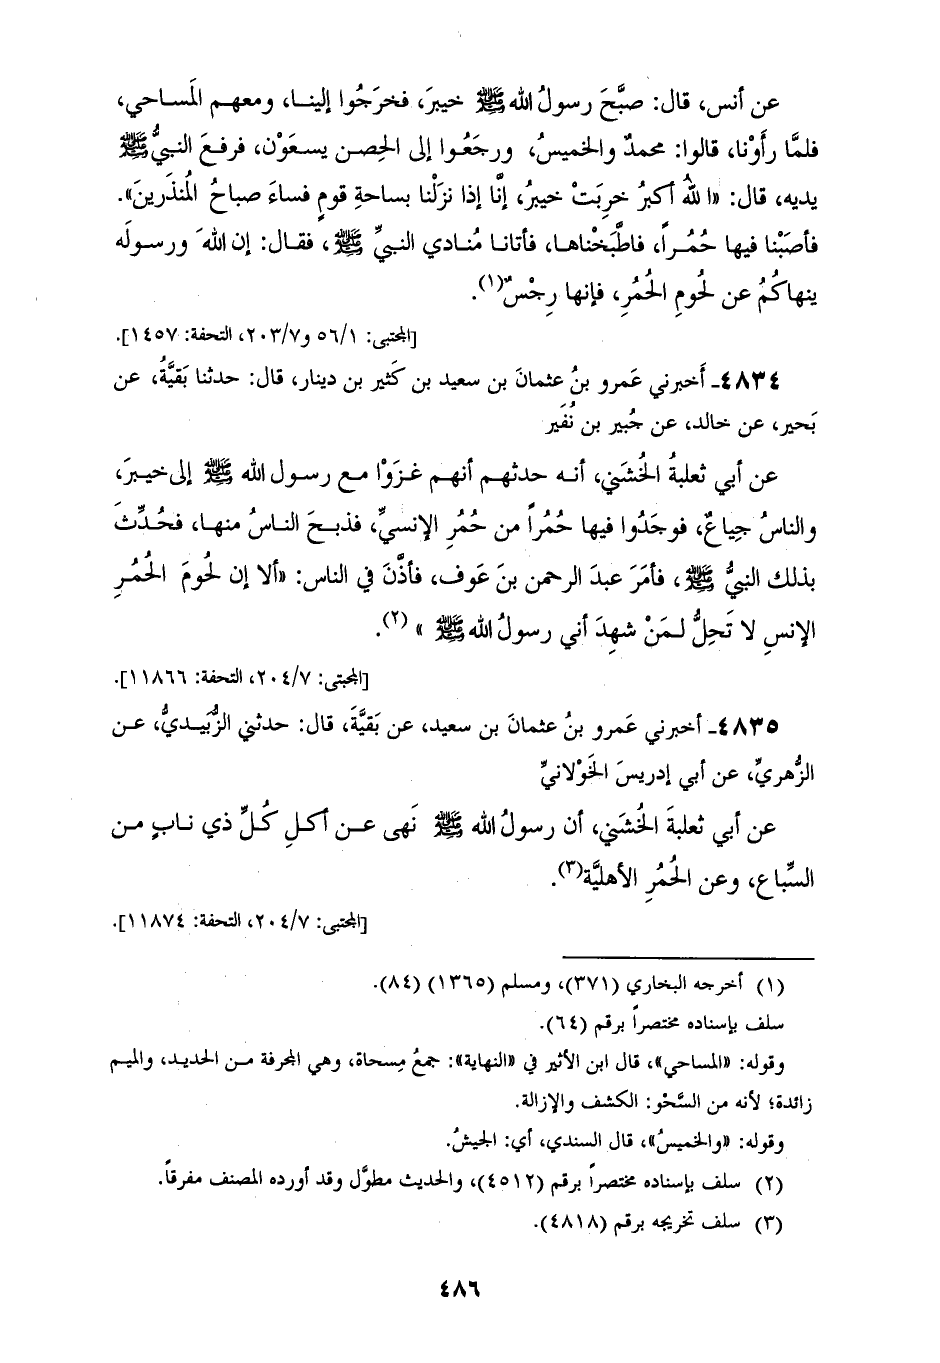 عن أنس، قال: صبَّحَ رسولُ الله ﷺ خيبرَ، فخرَجُوا إلينا، ومعهم المَساحي،
فلمَّا رأَوْنا، قالوا: محمدٌ والخميسُ، ورجَعُوا إلى الحِصن يسعَوْن، فرفعَ النبيُّ ﷺ
يديه، قال: «اللهُ أكبرُ خرِبَتْ خيبرُ، إنَّا إذا نزَلْنا بساحةِ قومٍ فساءَ صباحُ المُنذَرينَ».
فأصَبْنا فيها حُمُراً، فاطَّبَخْناها، فأتانا مُنادي النبيِّ ﷺ، فقال: إن اللهَ ورسولَه
ينهاكُمُ عن لُحومِ الحُمُرِ، فإنها رِجْسٌ(١).
[المجتبى: ٥٦/١ و٢٠٣/٧، التحفة: ١٤٥٧].
٤٨٣٤ـ أَخبرني عَمرو بنُ عثمانَ بن سعيد بن كَثير بن دينار، قال: حدثنا بَقيَّةُ، عن
بَحير، عن خالد، عن جُبير بن نُفَير
عن أبي ثعلبةُ الخُشَني، أنه حدثهم أنهم غزَوْا مع رسول الله ﷺ إلى خيبرَ،
والناسُ جِياعٌ، فوجَدُوا فيها حُمُراً من حُمُرِ الإنسيِّ، فذبحَ الناسُ منها، فحُدِّثَ
بذلك النبيُّ ﷺ، فأمَرَ عبدَ الرحمن بنَ عَوف، فأذَّنَ في الناس: «ألا إن لُحومَ الحُمُرِ
الإنسِ لا تَحِلُّ لمَنْ شهِدَ أني رسولُ الله ﷺ »(٢).
[المجبتى: ٢٠٤/٧، التحفة: ١١٨٦٦].
٤٨٣٥ـ أخبرني عَمرو بنُ عثمانَ بن سعيد، عن بَقيَّةَ، قال: حدثني الزُّبَيديُّ، عن
الزُّهريِّ، عن أبي إدريسَ الخَوْلانيِّ
عن أبي ثعلبةَ الخُشَني، أن رسولُ الله ﷺ نَهى عن أكلِ كُلِّ ذي نابٍ من
السِّباع، وعن الحُمُرِ الأهليَّة(٣).
[المجتبى: ٢٠٤/٧، التحفة: ١١٨٧٤].
(١) أخرجه البخاري (٣٧١)، ومسلم (١٣٦٥) (٨٤).
سلف بإسناده مختصراً برقم (٦٤).
وقوله: «المساحي»، قال ابن الأثير في «النهاية»: جمعُ مِسحاة، وهي المجرفة من الحديد، والميم
زائدة؛ لأنه من السَّحْو: الكشف والإزالة.
وقوله: «والخميسُ»، قال السندي، أي: الجيشُ.
(٢) سلف بإسناده مختصراً برقم (٤٥١٢)، والحديث مطوَّل وقد أورده المصنف مفرقاً.
(٣) سلف تخريجه برقم (٤٨١٨).
٤٨٦